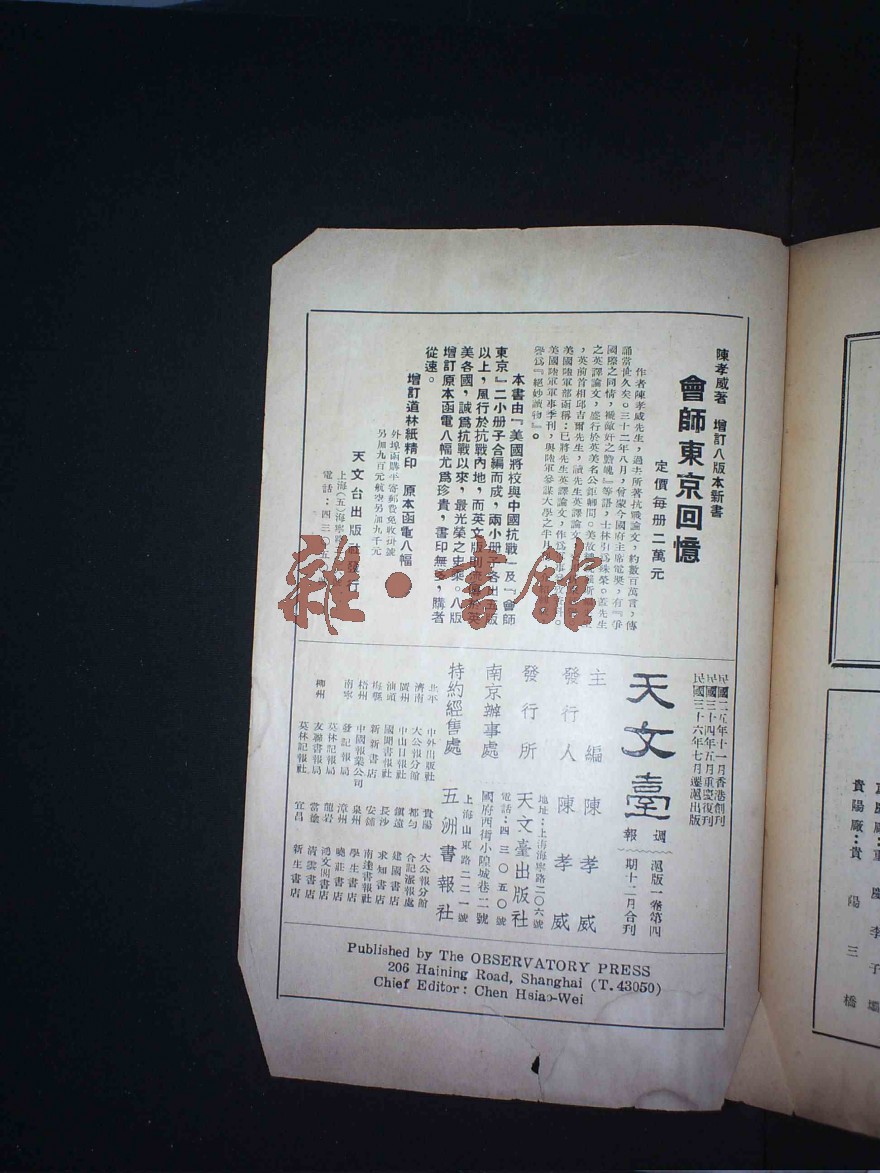 陳孝威著 增訂八版本新書
會師東京回憶
定價每册二萬元
作者陳孝威先生，過去所著抗戰論文，約數百萬言，傳
誦當世久矣。三十二年八月，曾蒙今國府主席電奬，有『爭
國際之同情，褫敵奸之魄魂』等語，士林引爲殊榮。蓋先生
之英譯論文，盛行於英美名公鉅卿間。美故
，英前首相邱吉爾先生，讀先生英譯論文
美國陸軍部函稱：已將先生英譯論文，作爲
美國陸軍軍事季刊，與陸軍參謀大學之半月
譽爲『絕妙讀物』。
本書由『美國將校與中國抗戰』及『會師
東京』二小册子合編而成，兩小册子各出五版
以上，風行於抗戰內地，而英文版則流傳於英
美各國，誠爲抗戰以來，最光榮之史築。八版
增訂原本函電八幅尤爲珍貴，書印無多，購者
從速。
增訂道林紙精印 原本函電八幅
外埠函購平寄郵費免收掛號
另加九百元航空另加九千元
天文台出版社發行
上海(五)海寧路
電話：四三〇五
民國二五年十一月香港創刊
民國三十四年五月重慶復刊
民國三十六年七月遷滬出版
天文臺
週報
滬版一卷第四
期十二月合刊
主編 陳孝威
發行人 陳孝威
發行所 天文臺出版社
地址：上海海寧路二〇六號
電話：四三〇五〇號
南京辦事處 國府西街小隍城巷二號
特約經售處 五洲書報社
上海山東路二二一號
北平 中外出版社
濟南 大公報分館
廣州 中山日報社
汕頭 國聞書報社
梅縣 新新書店
梧州 中國報業公司
南寧 發記報局
莫林記報局
柳州 友聯書報局
莫林記報社
貴陽 大公報分館
都勻 合記滙報處
鎮遠 建國書店
長沙 求知書店
安鋪 南達書報社
泉州 學生書店
漳州 曉莊書店
龍岩 鴻文閣書店
當塗 清雲書店
宜昌 新生書店
Published by The OBSERVATORY PRESS
206 Haining Road, Shanghai (T. 43050)
Chief Editor: Chen Hsiao-Wei
雜·書館
貴陽廠：貴陽三橋